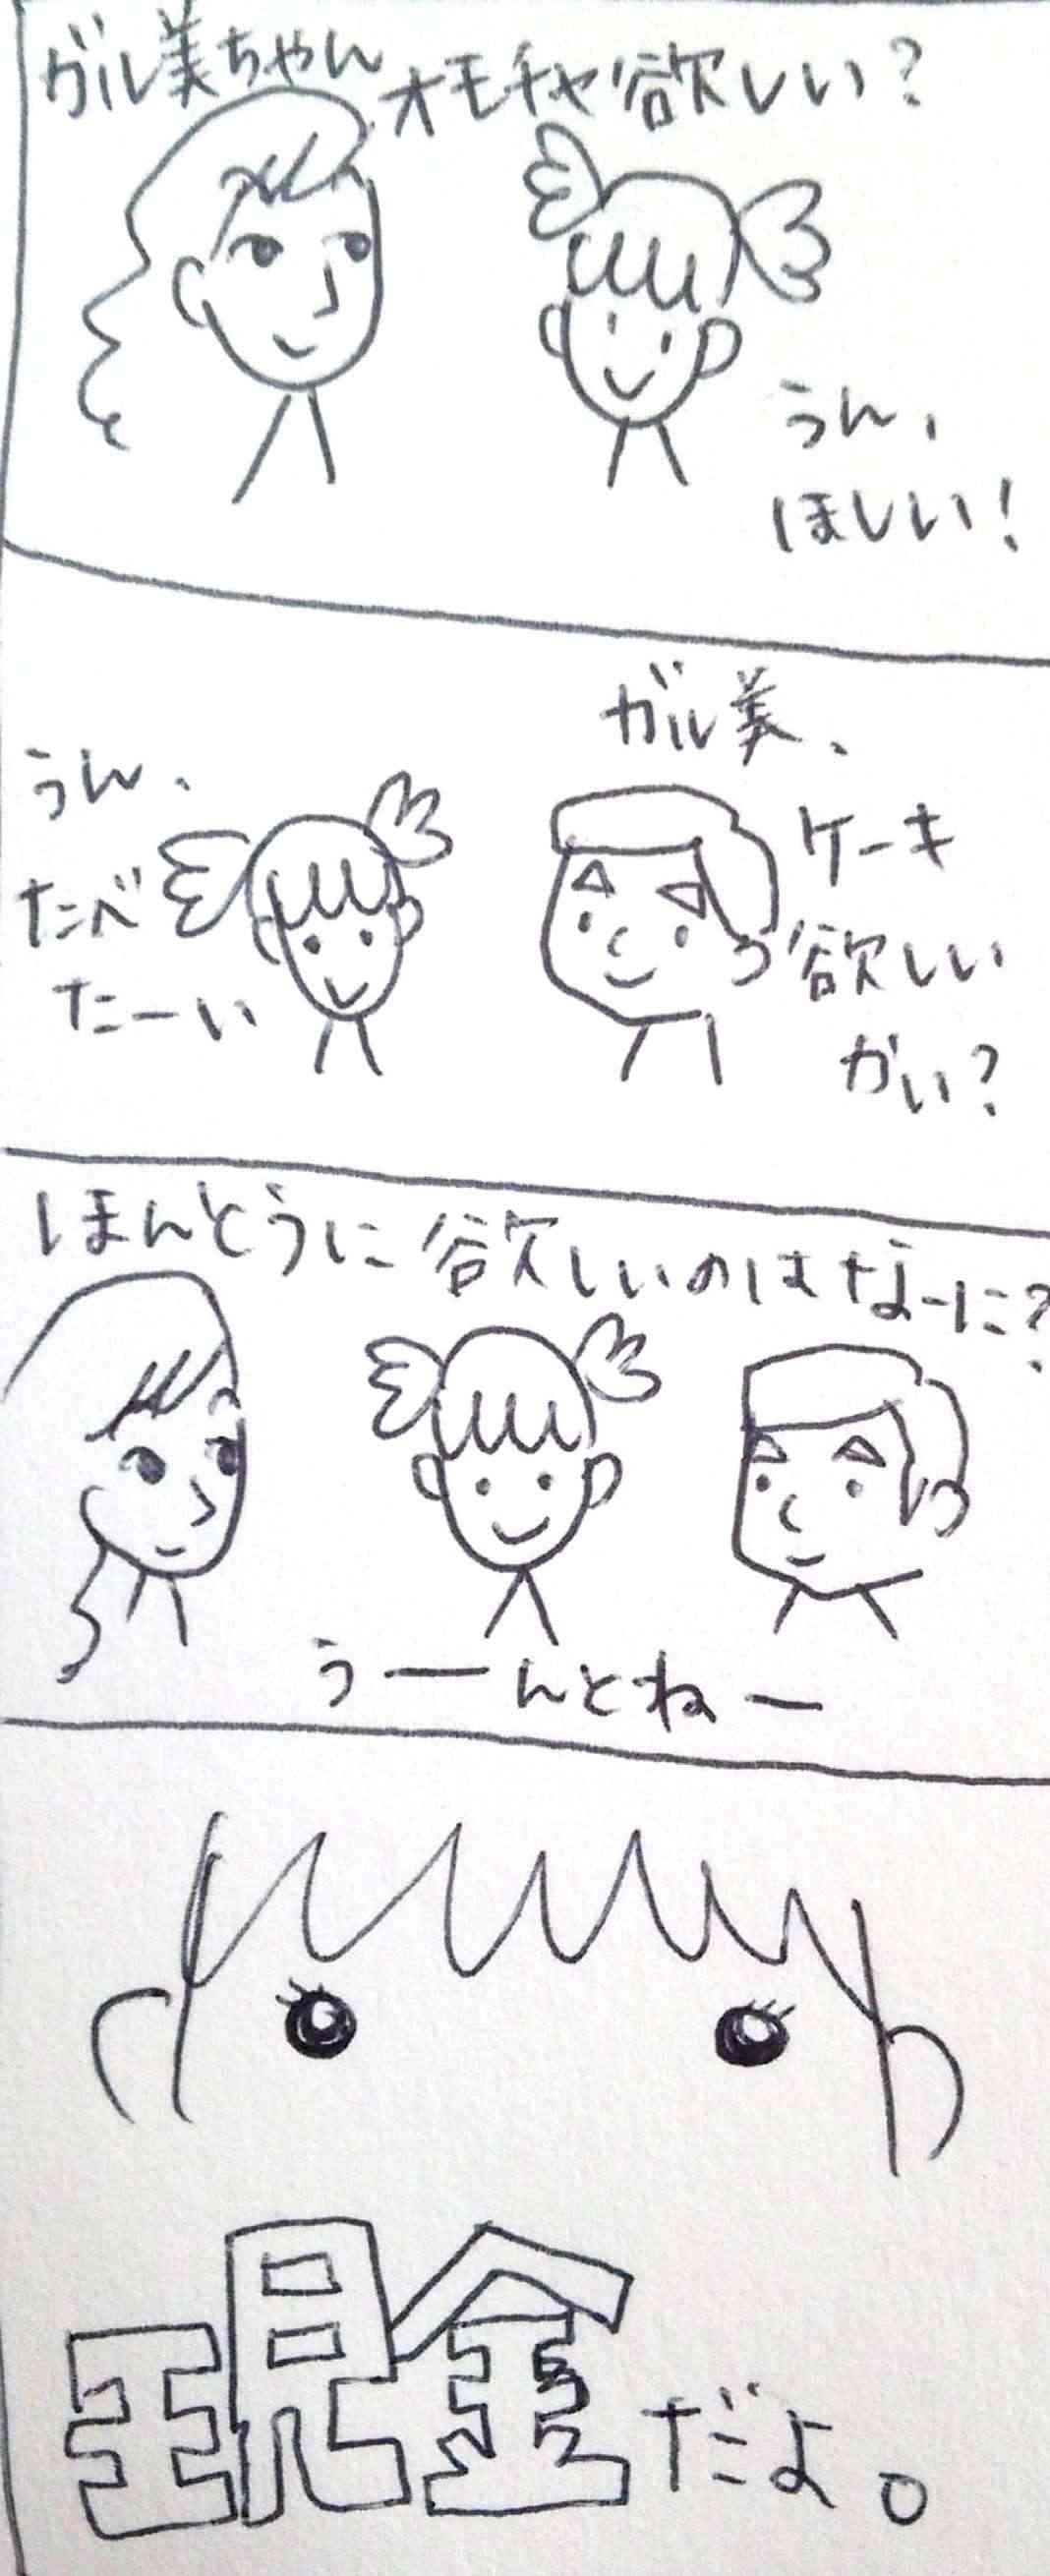 ガル美ちゃん
オモチャ欲しい?
うん、
ほしい!
ガル美、
ケーキ
欲しい
かい?
うん、
たべ
たーい
ほんとうに欲しいのはなーに?
うーんとねー
現金だよ。